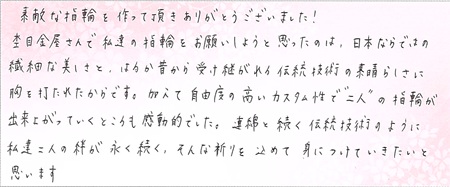 素敵な指輪を作って頂きありがとうございました！
杢目金屋さんで私達の指輪をお願いしようと思ったのは、日本ならではの
繊細な美しさと、はるか昔から受け継がれる伝統技術の素晴らしさに
胸を打たれたからです。加えて自由度の高いカスタム性で"二人"の指輪が
出来上がっていくところも感動的でした。連綿と続く伝統技術のように
私達二人の絆が永く続く、そんな祈りを込めて身につけていきたいと
思います